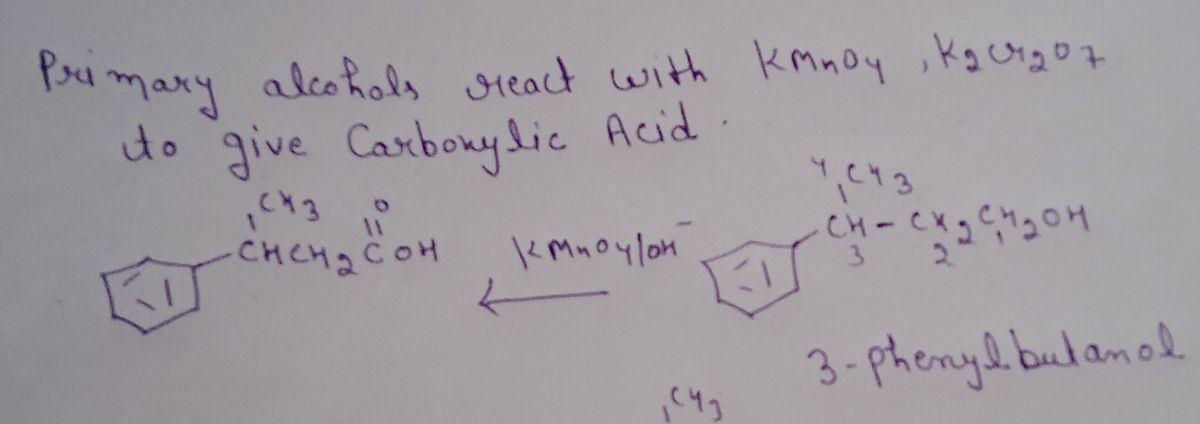 Primary alcohols react with KMnO4, K2Cr2O7
to give Carboxylic Acid.
CH3 O
CHCH2COH
KMnO4/OH-
4 CH3
CH-CH2CH2OH
3 2 1
3-phenylbutanol
CH3